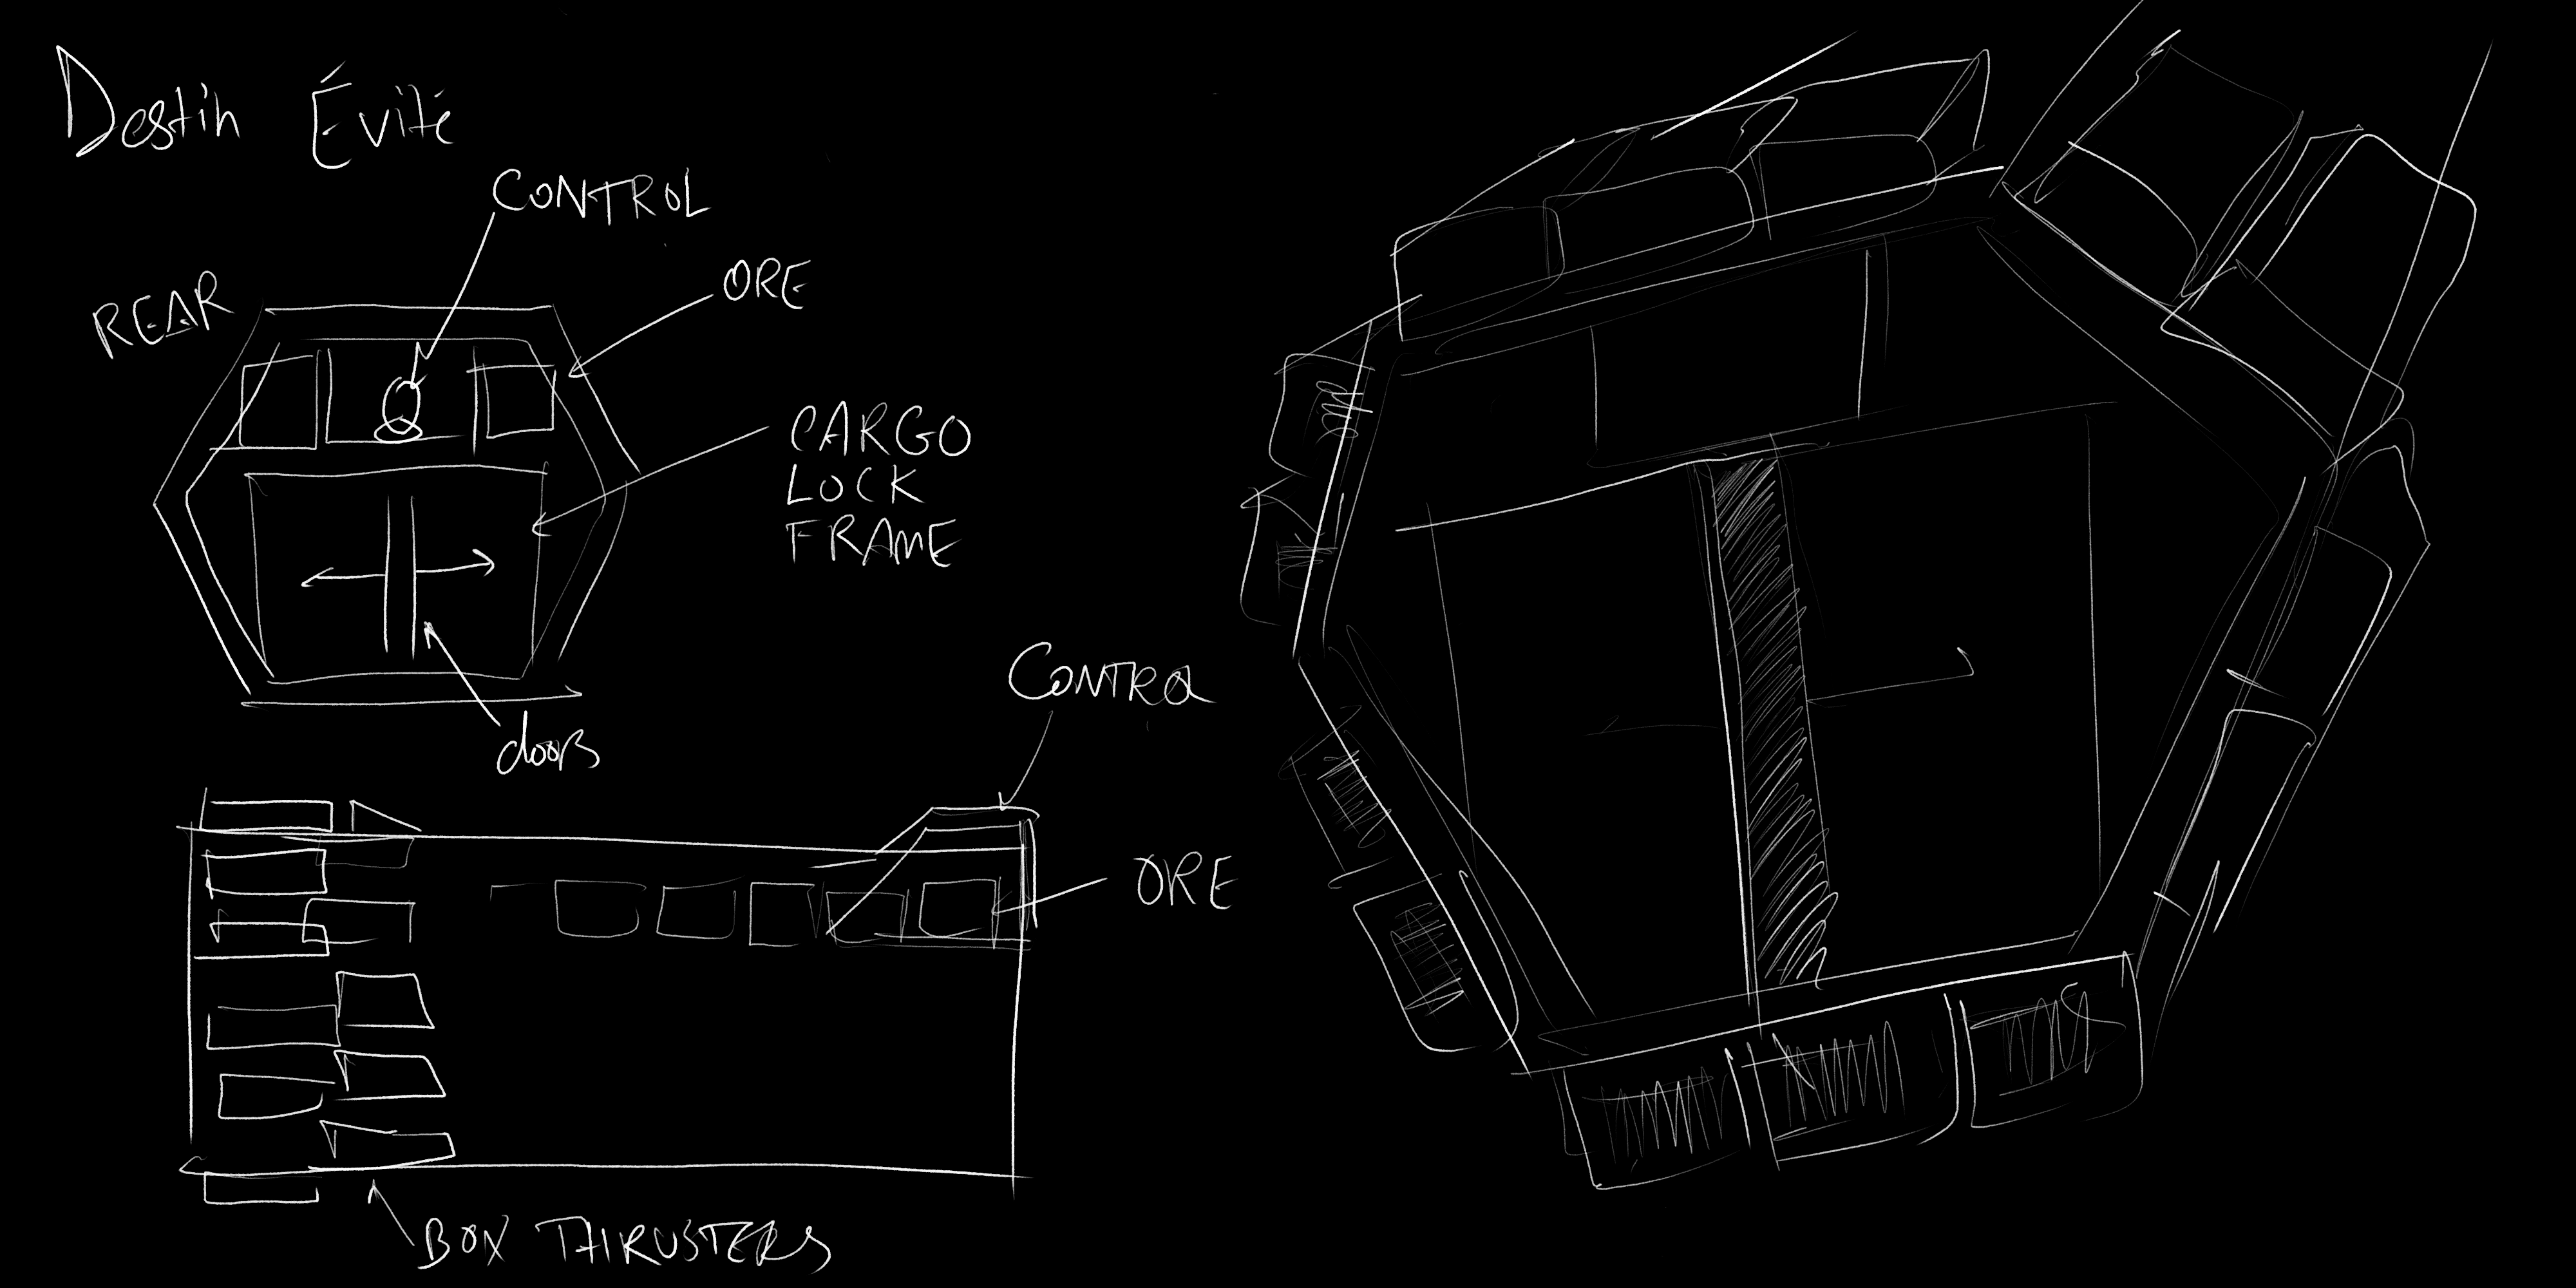 Destin Évité
CONTROL
ORE
REAR
CARGO
LOCK
FRAME
doors
CONTROL
ORE
BOX THRUSTERS